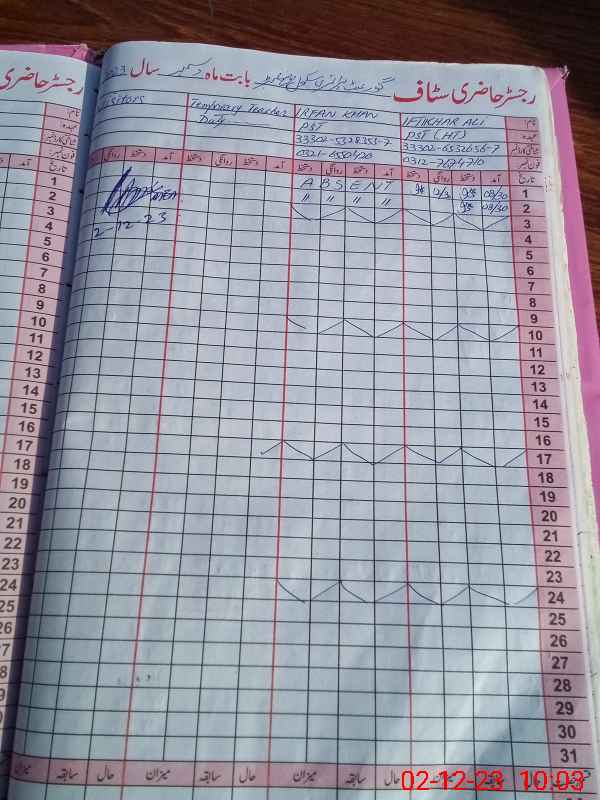 رجسٹر حاضری سٹاف گورنمنٹ پرائمری سکول بابت ماہ دسمبر سال 2023
نام IFTIKHAR ALI IRFAN KHAN Temporary Teacher Visitors
عہدہ PST (HT) PST Duty
شناختی کارڈ نمبر 33302-6532656-7 33302-5328355-7
فون نمبر 0312-7674710 0321-6504120
تاریخ آمد دستخط روانگی دستخط آمد دستخط روانگی دستخط آمد دستخط روانگی دستخط آمد دستخط روانگی
1 08/30 ABSENT
2 08/30 〃 〃 〃 〃
2-12-23
3
4
5
6
7
8
9
10
11
12
13
14
15
16
17
18
19
20
21
22
23
24
25
26
27
28
29
30
31
سابقہ حال میزان سابقہ حال میزان سابقہ حال میزان
02-12-23 10:03